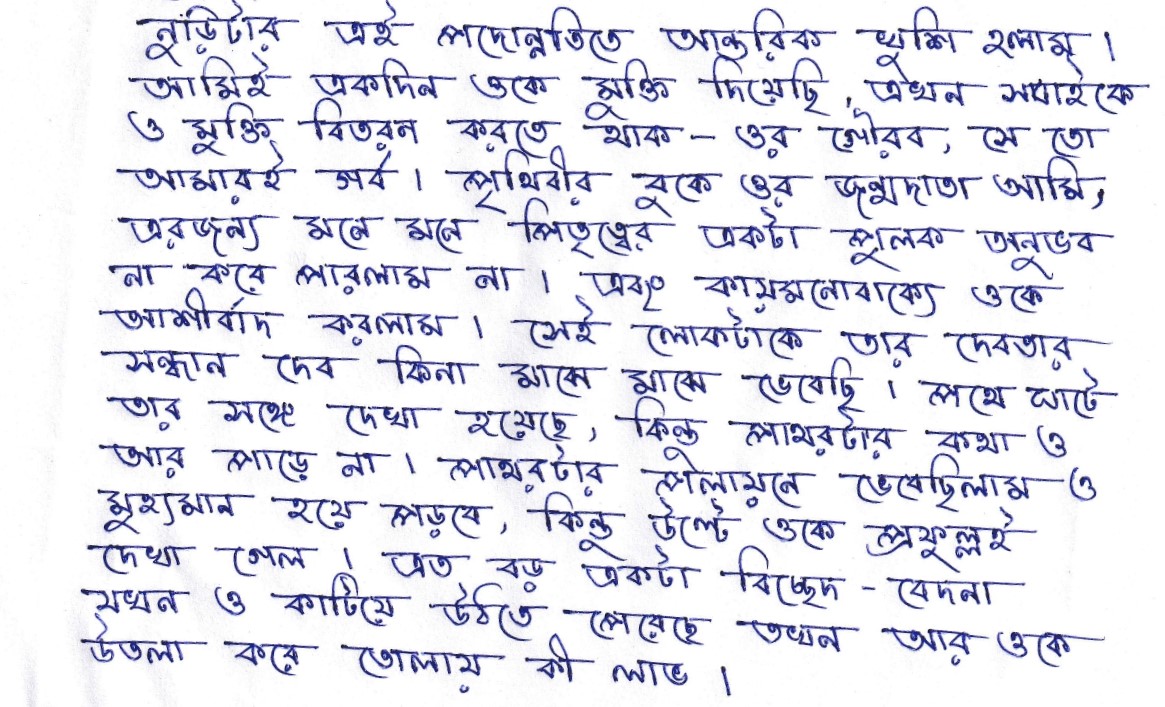 নুড়িটার এই পদোন্নতিতে আন্তরিক খুশি হলাম।
আমিই একদিন ওকে মুক্তি দিয়েছি, এখন সবাইকে
ও মুক্তি বিতরন করতে থাক - ওর গৌরব, সে তো
আমারই গর্ব। পৃথিবীর বুকে ওর জন্মদাতা আমি,
এরজন্য মনে মনে পিতৃত্বের একটা পুলক অনুভব
না করে পারলাম না। এবং কায়মনোবাক্যে ওকে
আশীর্বাদ করলাম। সেই লোকটাকে তার দেবতার
সন্ধান দেব কিনা মাঝে মাঝে ভেবেছি। পথে ঘাটে
তার সঙ্গে দেখা হয়েছে, কিন্তু পাথরটার কথা ও
আর পাড়ে না। পাথরটার পলায়নে ভেবেছিলাম ও
মুহ্যমান হয়ে পড়বে, কিন্তু উল্টে ওকে প্রফুল্লই
দেখা গেল। এত বড় একটা বিচ্ছেদ - বেদনা
যখন ও কাটিয়ে উঠতে পেরেছে তখন আর ওকে
উতলা করে তোলায় কী লাভ।